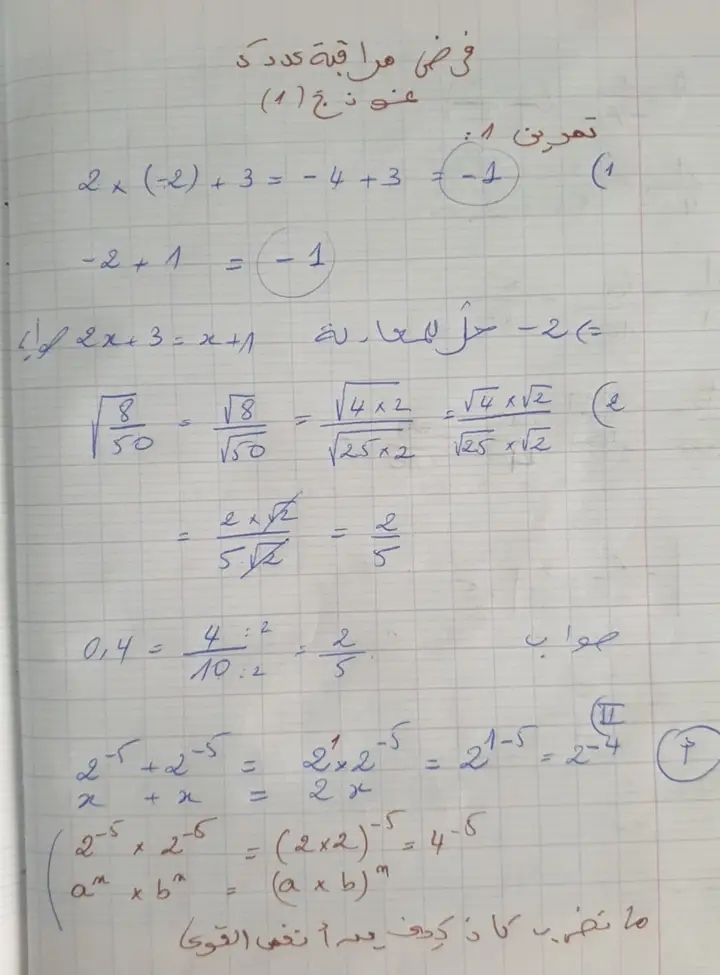 فرض مراقبة عدد 2
نموذج (1)
تمرين 1:
1) 2 × (-2) + 3 = -4 + 3 = -1
-2 + 1 = -1
=> -2 حل للمعادلة 2x + 3 = x + 1 صواب
2) √(8/50) = √8/√50 = √(4×2)/√(25×2) = (√4 × √2)/(√25 × √2)
= (2 × √2)/(5√2) = 2/5
صواب 0,4 = (4 :2)/(10 :2) = 2/5
II)
2^-5 + 2^-5 = 2^1 × 2^-5 = 2^(1-5) = 2^-4
x + x = 2 x
( 2^-5 × 2^-5 = (2×2)^-5 = 4^-5
a^n × b^n = (a × b)^n
القوى